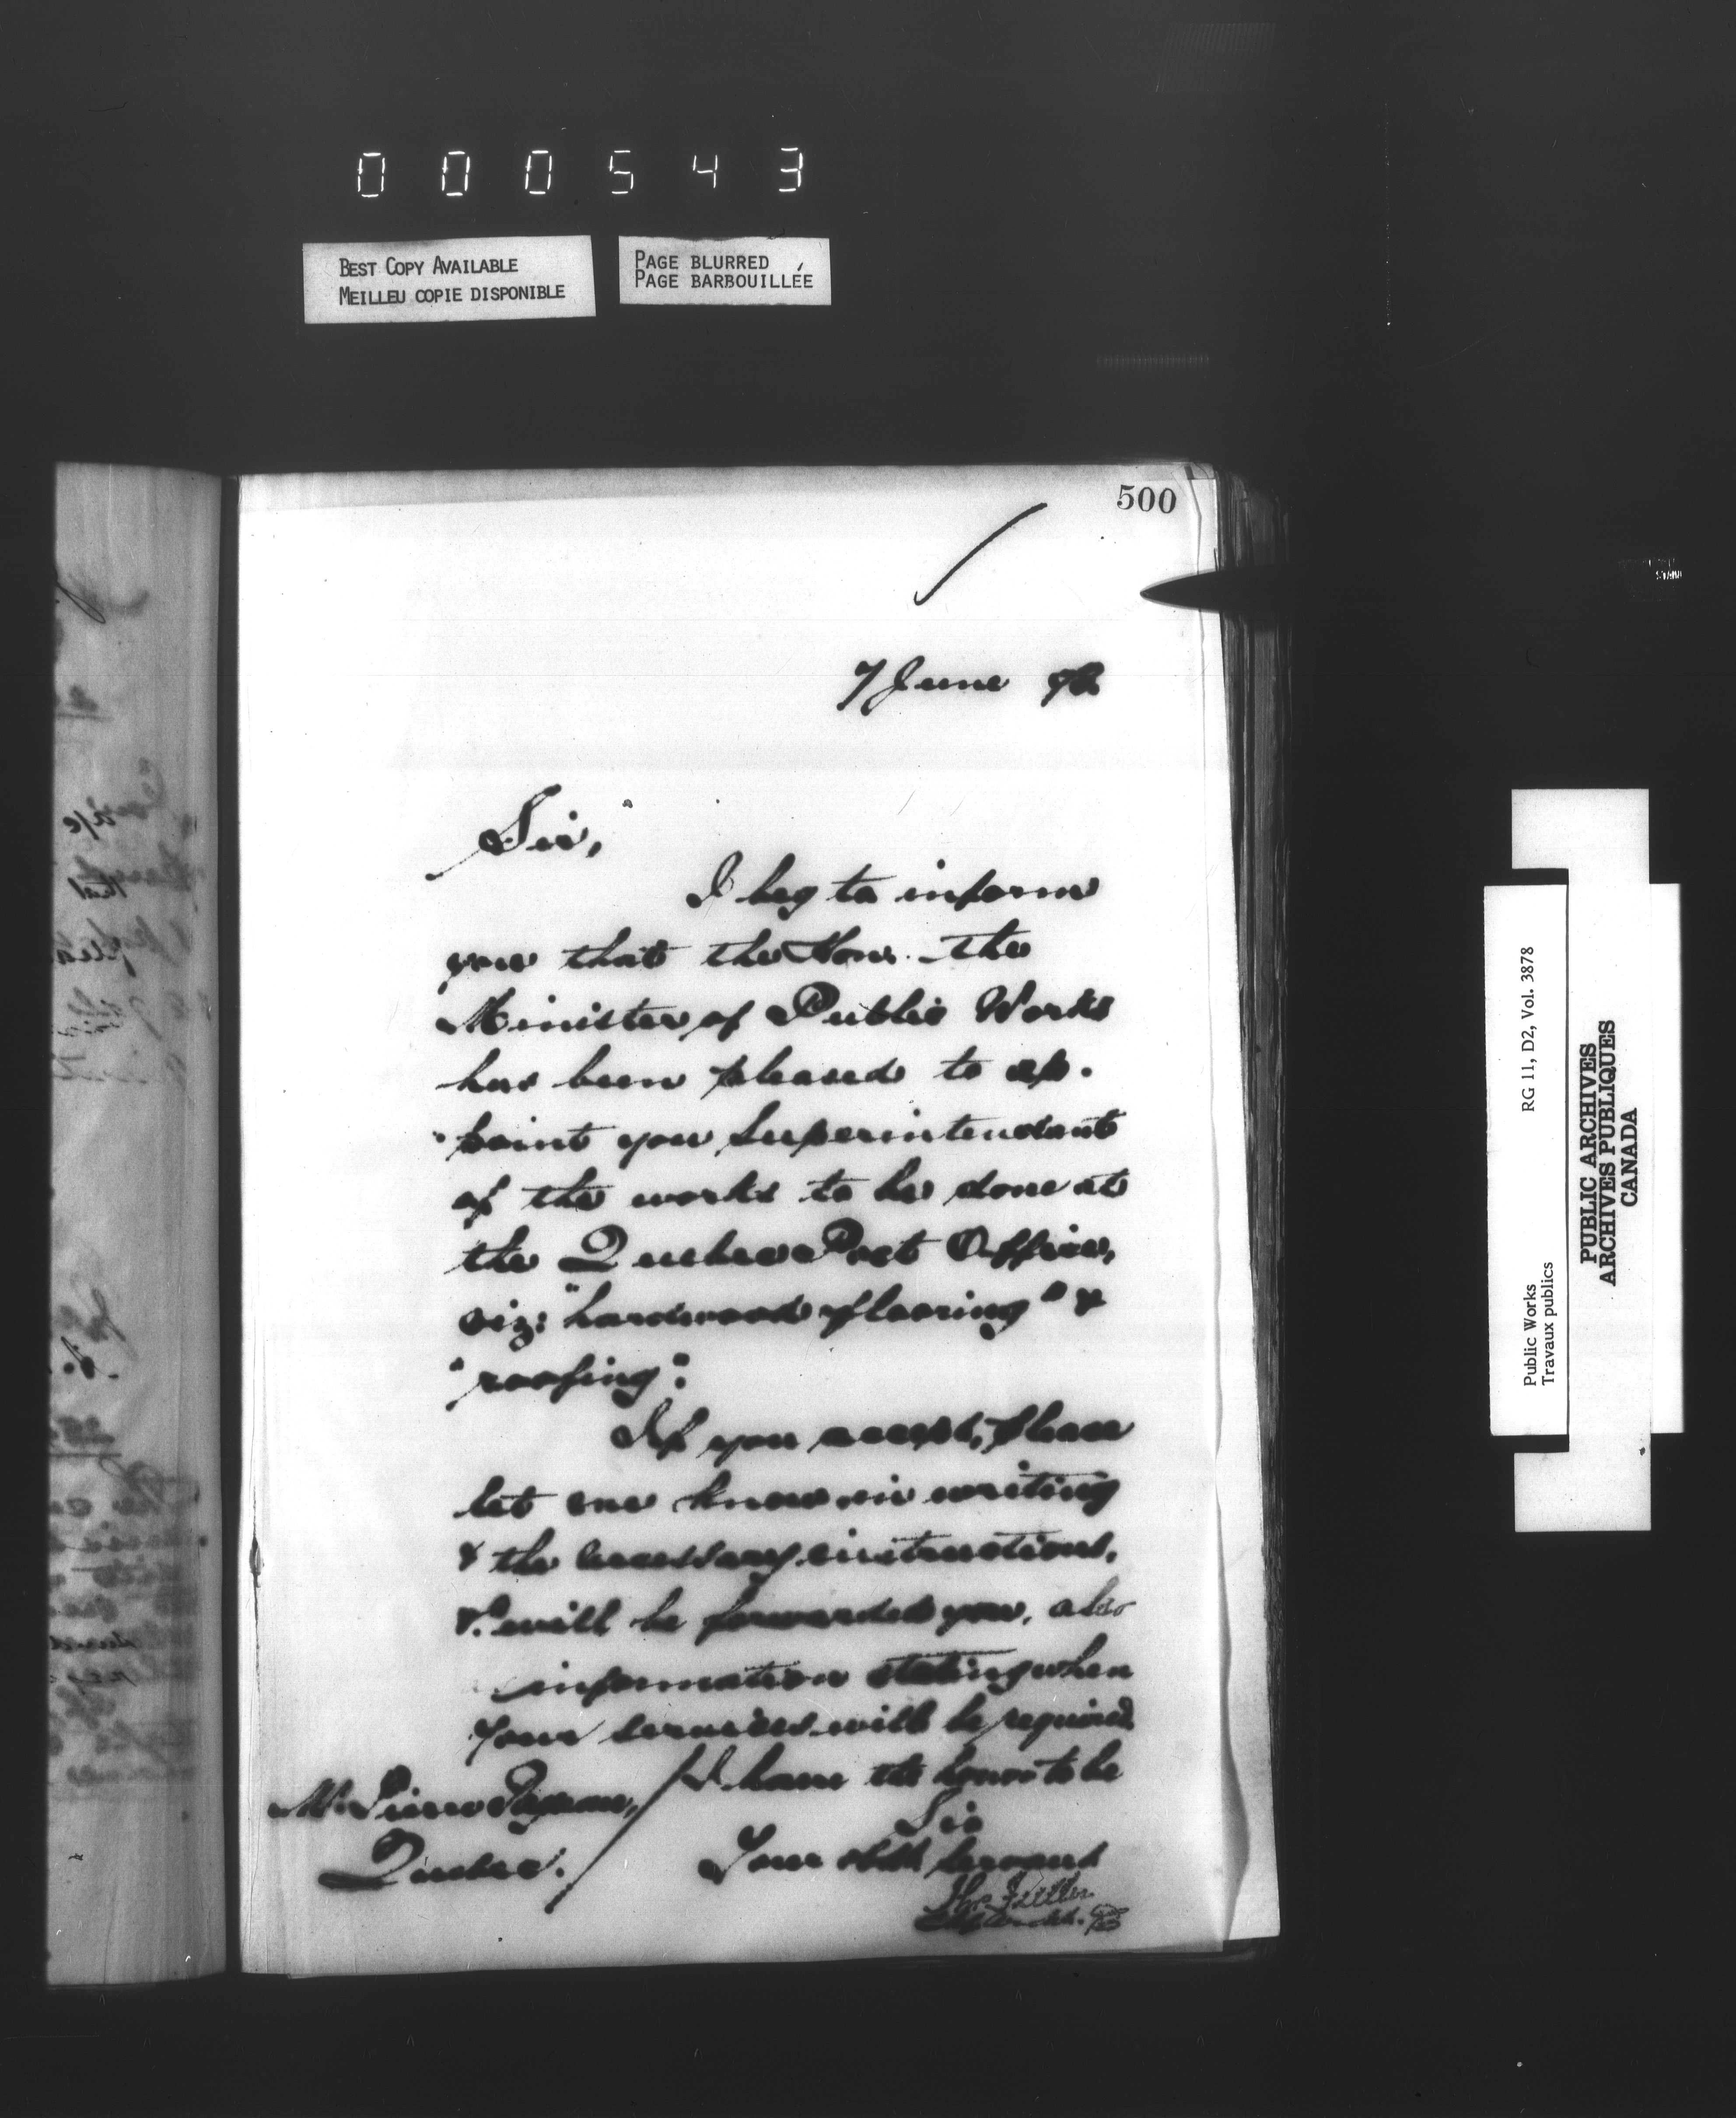 000543
BEST COPY AVAILABLE
MEILLEU COPIE DISPONIBLE
PAGE BLURRED
PAGE BARBOUILLÉE
500
7 June
Sir,
I beg to inform
you that the Hon. the
Minister of Public Works
has been pleased to ap-
point you Superintendant
of the works to be done at
the Quebec Post Office,
viz: "hardwood flooring" &
"roofing".
If you accept, please
let me know in writing
& the necessary instructions,
&c. will be forwarded you, also
information stating when
your services will be required
I have the honor to be
Sir
Your obdt servant
Thos Fuller
Mr. Pierre
Quebec.
Public Works RG 11, D2, Vol. 3878
Travaux publics
PUBLIC ARCHIVES
ARCHIVES PUBLIQUES
CANADA